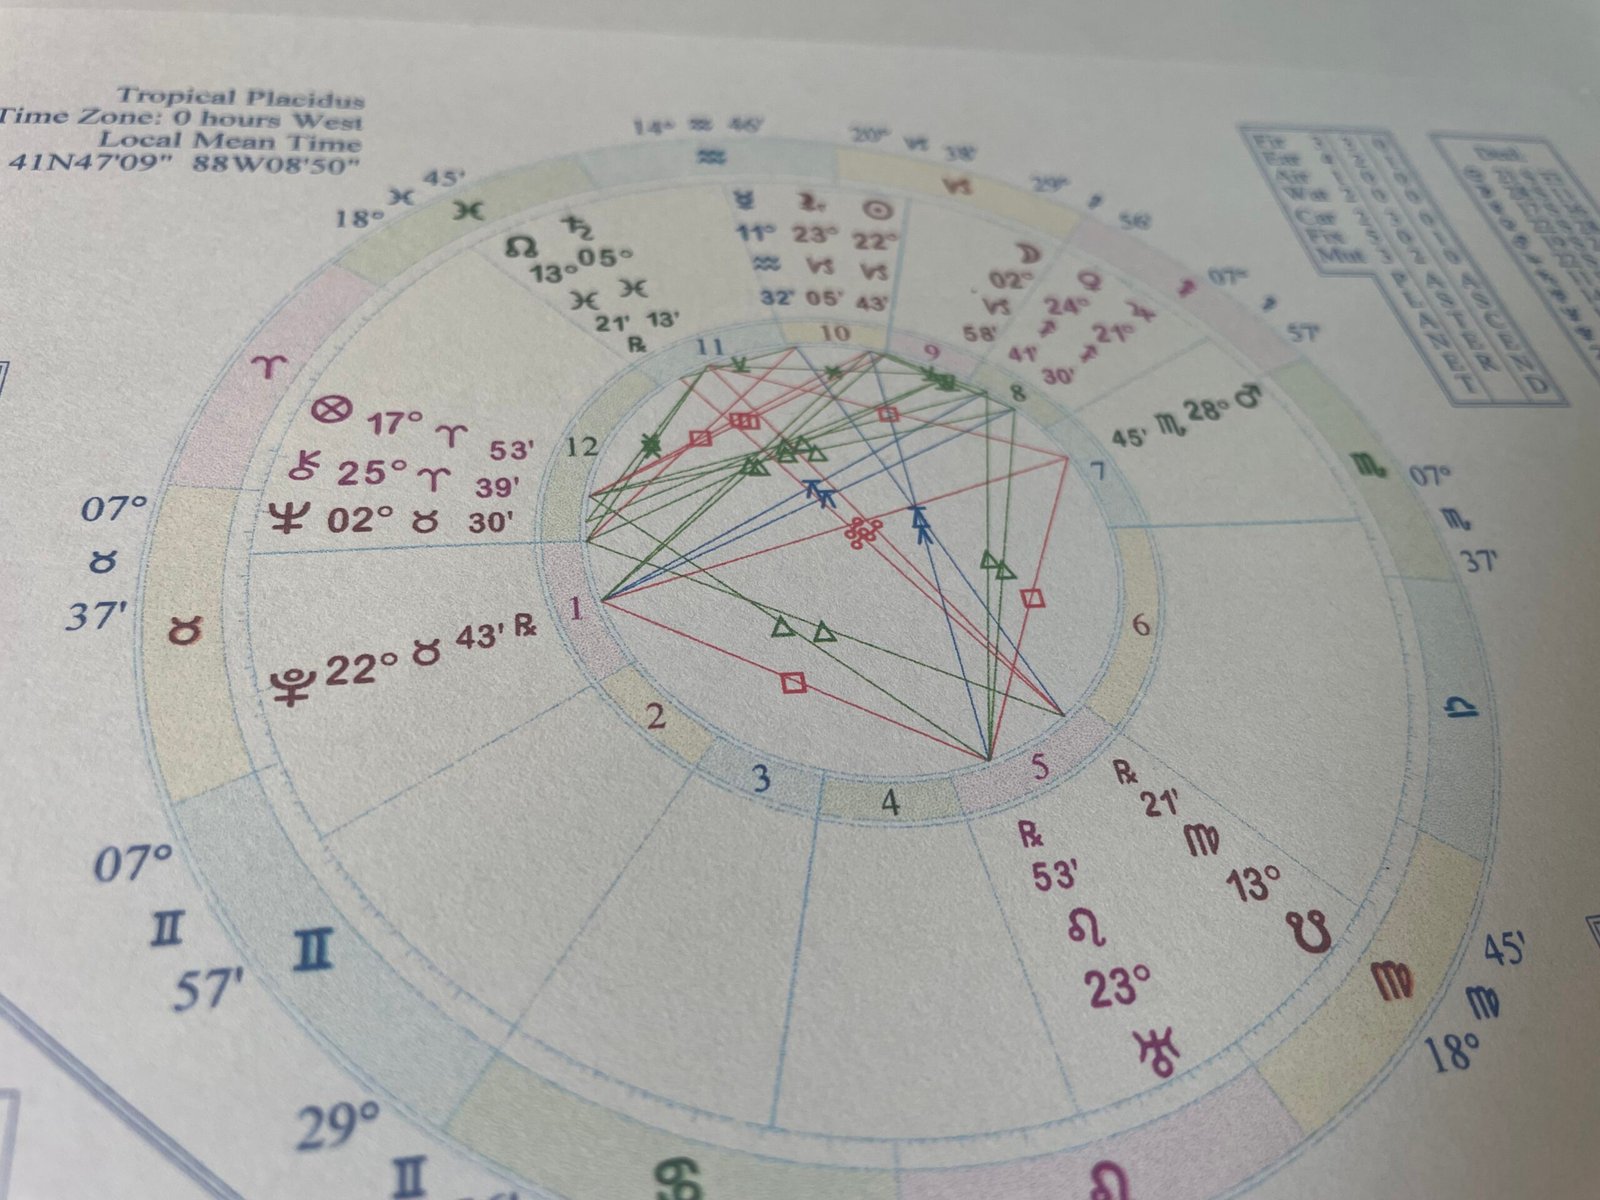 Tropical Placidus
Time Zone: 0 hours West
Local Mean Time
41N47'09" 88W08'50"
14° ♒ 46'
20° ♑ 38'
29° ♐ 56'
07° ♐ 57'
07° ♏ 37'
45' ♍ 18°
45' ♓ 18°
07° ♉ 37'
07° ♊ 57'
29° ♊
♒
♑
♐
♏
♎
♍
♌
♋
♊
♉
♈
♓
☊ 13° ♓ 21' ℞
♄ 05° ♓ 13'
☿ 11° ♒ 32'
23° ♑ 05'
☉ 22° ♑ 43'
☽ 02° ♑ 58'
♀ 24° ♐ 41'
♃ 21° ♐ 30'
45' ♏ 28° ♂
⊗ 17° ♈ 53'
⚷ 25° ♈ 39'
♆ 02° ♉ 30'
♇ 22° ♉ 43' ℞
℞ 53' ♌ 23° ♅
℞ 21' ♍ 13° ☋
1
2
3
4
5
6
7
8
9
10
11
12
Fir
Ear
Air
Wat
Car
Fix
Mut
PLANET
ASTER
ASCEND
Decl.